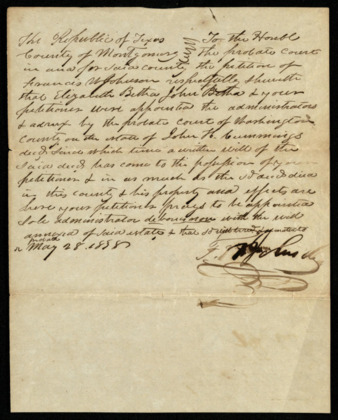 The Republic of Texas To the Honbl
County of Montgomery The probate Court
in and for said county the petition of
Francis W Johnson respectfully sheweth
that Elizabeth Bethe John Botha & your
petitioner were appointed the administrators
& adrex by the probate court of Washington
County on the estate of John R. Cummings
decd Since which time a written will of the
Said decd has come to the possession of your
petitioner & in as much as the Said decd died
in this county & his property and effects are
here your petitioner prays to be appointed
Sole administrator de bonis non with the will
annexed of said estate & that
May 28. 1838
F. W Johnson